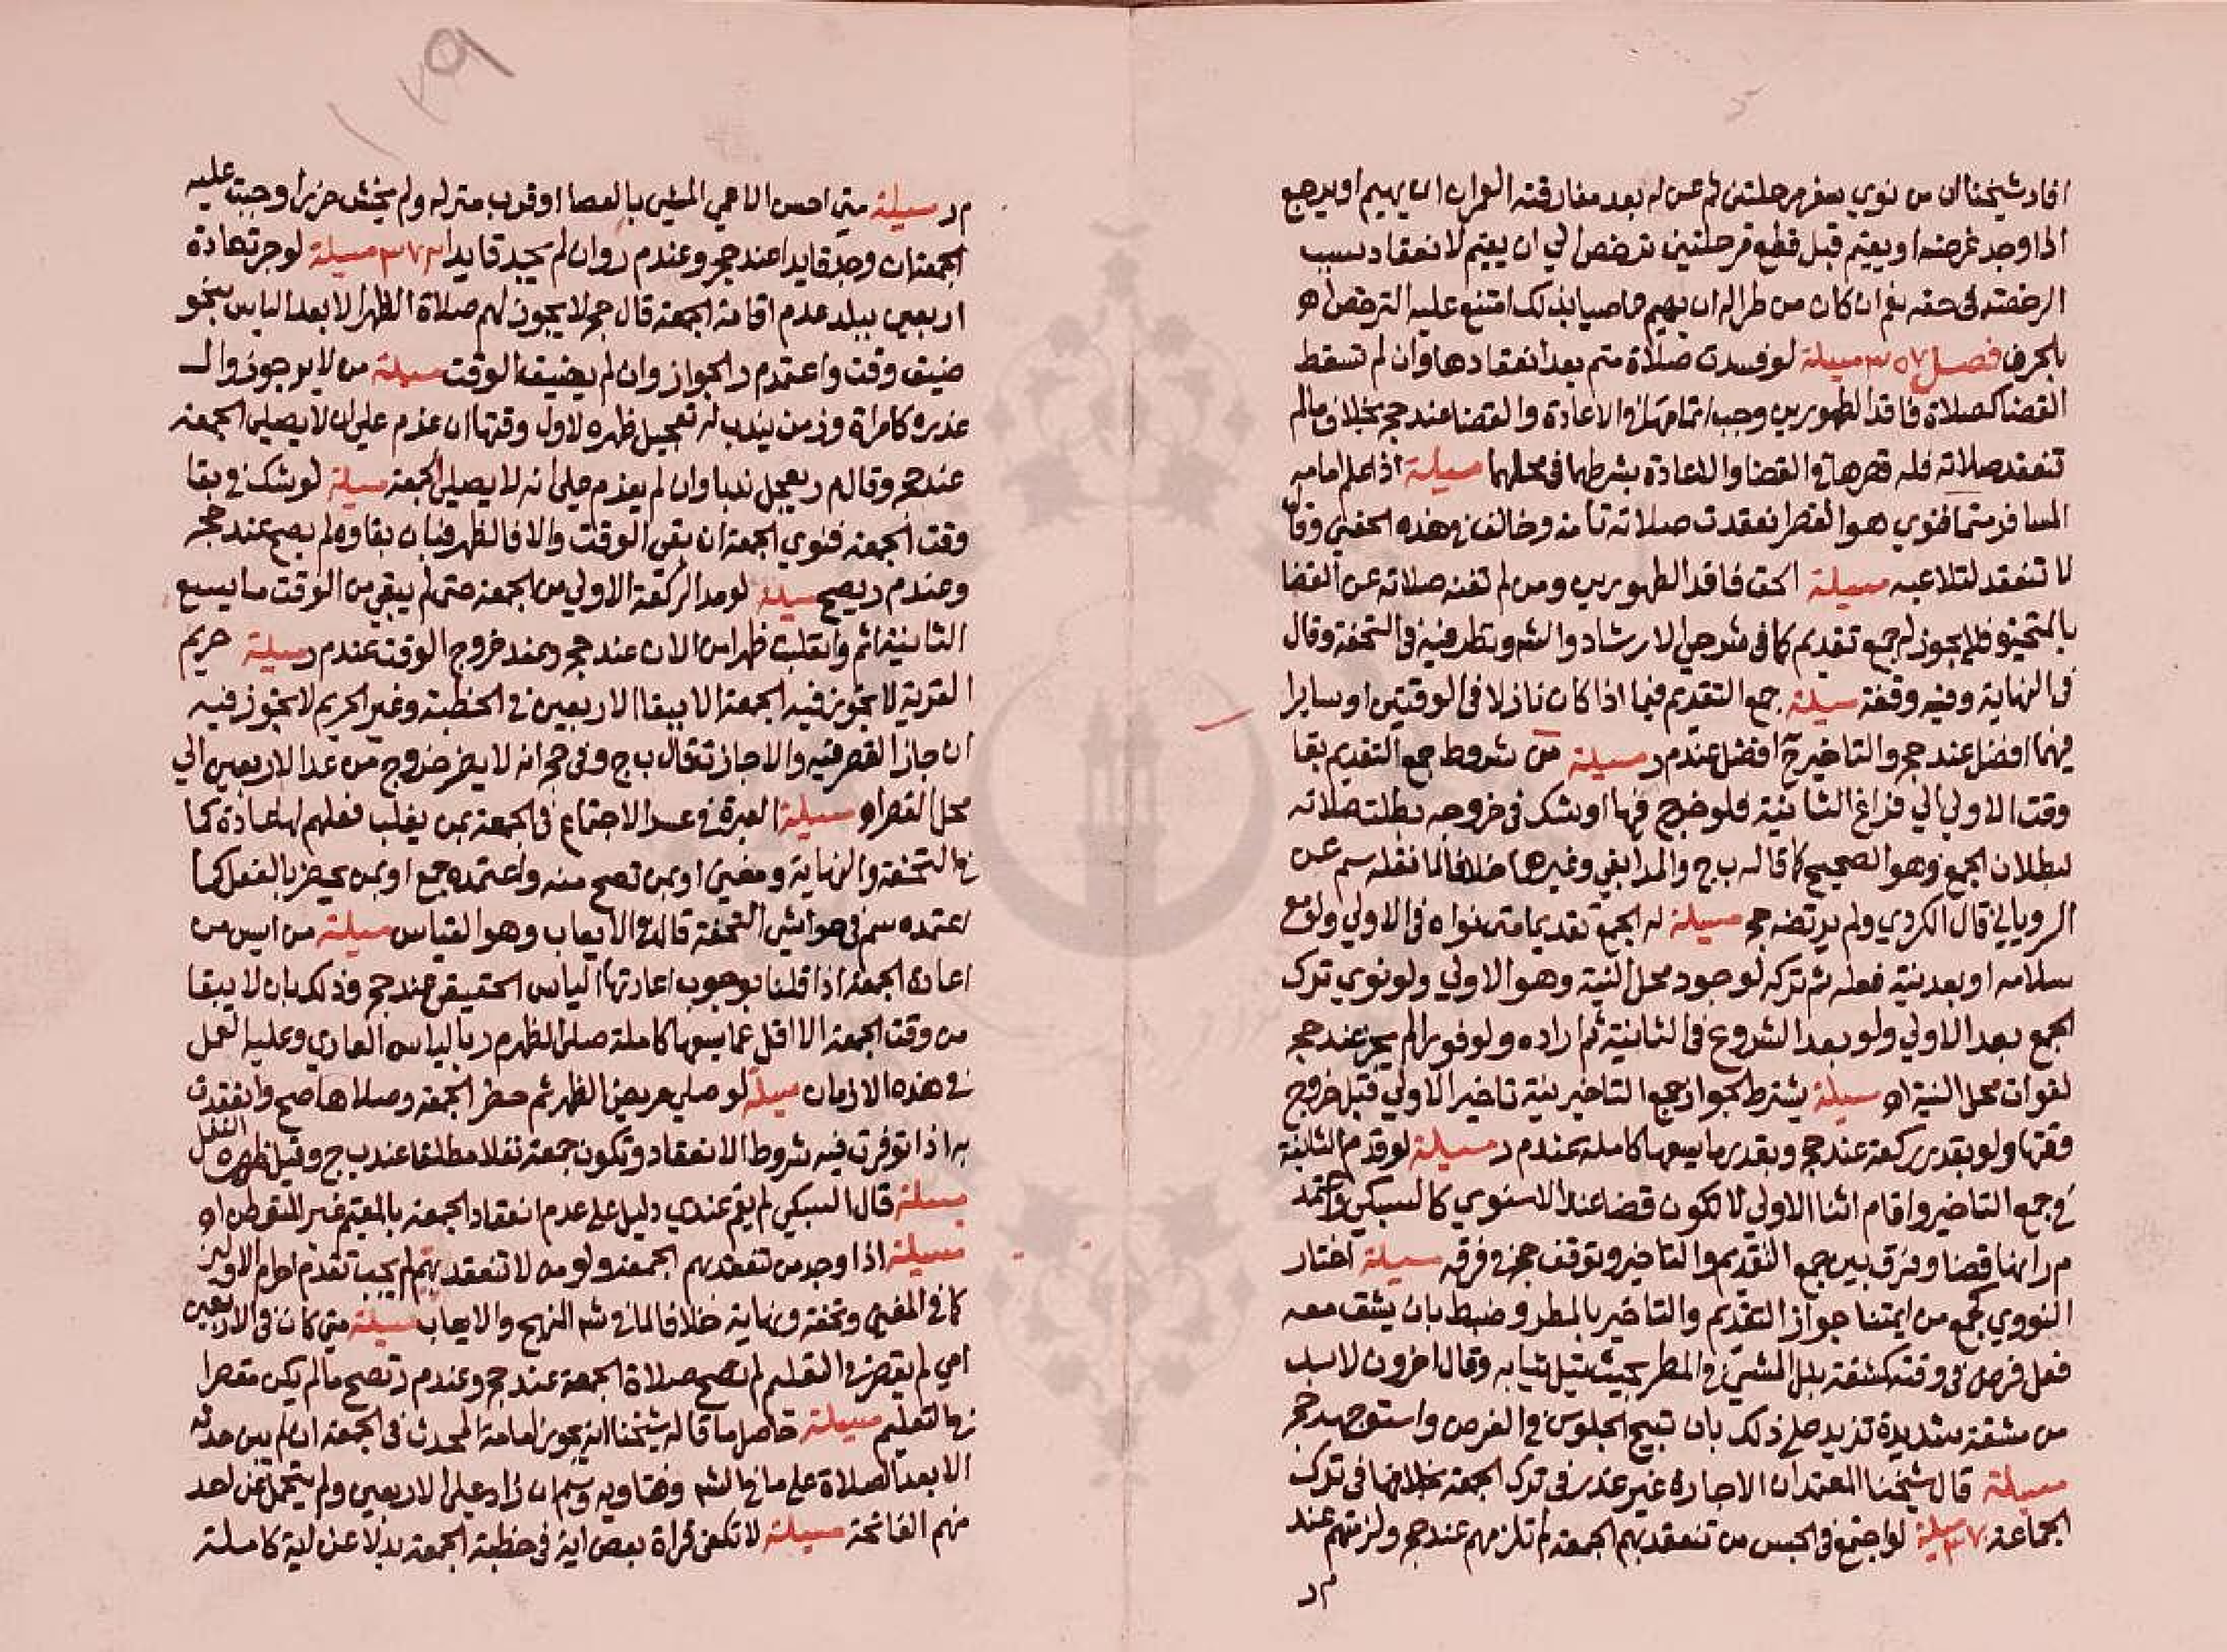 افاد شيخنا ان من نوي سفر مرحلتين ثم عن له بعد مفارقته العمران ان يهيم او يرجع
اذا وجد غرضه او يقيم قبل قطع مرحلتين ترخص الي ان يقيم لانعقاد سبب
الرخصة في حقه نعم ان كان من طراله ان يهيم عاصيا بذلك امتنع عليه الترخص اهـ
بالحرف فصل مسيلة لو فسدت صلاة متم بعد انعقادها وان لم تسقط
القضا كصلاة فاقد الطهورين وجب اتمامها في الاعادة والقضا عند حجر بخلاف ما لم
تنعقد صلاته فله قصرها في القضا والاعادة بشرطهما في محلهما مسيلة اذا علم امامه
المسافر متما فنوي هو القصر انعقدت صلاته تامة وخالف في هذه الحفني وقال
لا تنعقد لتلاعبه مسيلة الحق فاقد الطهورين ومن لم تغنه صلاته عن القضا
بالمتحيرة فلا يجوز له جمع تقديم كما في شرحي الارشاد والشه ونظر فيه في التحفة وقال
في النهاية وفيه وقفة مسيلة جمع التقديم فيما اذا كان نازلا في الوقتين او سايرا
فيهما افضل عند حجر والتاخير ح افضل عند م ر مسيلة من شروط جمع التقديم بقا
وقت الاولي الي فراغ الثانية فلو خرج فيها او شك في خروجه بطلت صلاته
لبطلان الجمع وهو الصحيح كما قاله ب ج والمدابغي وغيرها خلافا لما نقله سم عن
الروياني قال الكردي ولم يرتضه حجر مسيلة له الجمع تقديما متي نواه في الاولي ولو مع
سلامه او بعد نية فعله ثم تركه لوجود محل النية وهو الاولي ولو نوي ترك
الجمع بعد الاولي ولو بعد الشروع في الثانية ثم اراده ولو فورا لم يجز عند حجر
لفوات محل النية اهـ مسيلة يشترط لجواز جمع التاخير نية تاخير الاولي قبل خروج
وقتها ولو بقدر ركعة عند حجر وبقدر ما يسعها كاملة عند م ر مسيلة لو قدم الثانية
في جمع التاخير واقام اثنا الاولي لا تكون قضا عند الاسنوي كالسبكي واعتمد
م ر انها قضا وفرق بين جمع التقديم والتاخير وتوقف حجر في فرقه مسيلة اختار
النووي كجمع من ايمتنا جواز التقديم والتاخير بالمطر وضبط بان يشق معه
فعل فرض في وقته كمشقة بلل المشي في المطر بحيث يبتل ثيابه وقال اخرون لابد
من مشقة شديدة تزيد علي ذلك بان تبيح الجلوس في الفرض واستوجهه حجر
مسيلة قال شيخنا المعتمد ان الاجارة غير عذر في ترك الجمعة بخلافها في ترك
الجماعة مسيلة لو اجتمع في الحبس من تنعقد بهم الجمعة لم تلزمهم عند حجر ولزمتهم عند
م ر
١٧٩
م ر مسيلة متي احسن الاعمي المشي بالعصا او قرب منزله ولم يخش ضررا وجبت عليه
الجمعة ان وجد قايدا عند حجر وعند م ر وان لم يجد قايدا مسيلة لو جرت عادة
اربعين ببلد عدم اقامة الجمعة قال حجر لا يجوز لهم صلاة الظهر الا بعد الياس بنحو
ضيق وقت واعتمد م ر الجواز وان لم يضيق الوقت مسيلة من لا يرجو زوال
عذره كامراة وزمن يندب له تعجيل ظهره لاول وقتها ان عزم علي ان لا يصلي الجمعة
عند حجر وقال م ر يعجل ندبا وان لم يعزم علي انه لا يصلي الجمعة مسيلة لو شك في بقا
وقت الجمعة فنوي الجمعة ان بقي الوقت والا فالظهر فبان بقاوه لم يصح عند حجر
وعند م ر يصح مسيلة لو مد الركعة الاولي من الجمعة حتي لم يبقي من الوقت ما يسع
الثانية اثم وانقلبت ظهرا من الان عند حجر وعند خروج الوقت عند م ر مسيلة حريم
القرية لا تجوز فيه الجمعة الا ببقا الاربعين في الخطبة وغير الحريم لا تجوز فيه
ان جاز القصر فيه والا جازت قال ب ج وفي حجر انه لا يضر خروج من عدا الاربعين الي
محل القصر اهـ مسيلة العبرة في عسر الاجتماع في الجمعة بمن يغلب فعلهم لها عادة كما
في التحفة والنهاية ومغني او بمن تصح منه واعتمده جمع او بمن يحضر بالفعل كما
اعتمده سم في حواشي التحفة قال في الايعاب وهو القياس مسيلة من ايس من
اعادة الجمعة اذا قلنا بوجوب اعادتها الياس الحقيقي عند حجر وذلك بان لا يبقا
من وقت الجمعة الا اقل مما يسعها كاملة صلي الظهر م ر بالياس العادي وعليه العمل
في هذه الازمان مسيلة لو صلي مريض الظهر ثم حضر الجمعة وصلاها صح وانعقدت
به اذا توفرت فيه شروط الانعقاد وتكون جمعة نفلا مطلقا عند ب ج وقيل ظهره النفل
مسيلة قال السبكي لم يقم عندي دليل علي عدم انعقاد الجمعة بالمقيم غير المتوطن اهـ
مسيلة اذا وجد من تنعقد بهم الجمعة ولو من لا تنعقد بهم لم يجب تقدم احرام الاولين
كما في المغني وتحفة ونهاية خلافا لما في شه المنهج والايعاب مسيلة متي كان في الاربعين
امي لم يقصر في التعليم لم تصح صلاة الجمعة عند حجر وعند م ر تصح ما لم يكن مقصرا
في التعليم مسيلة حاصل ما قاله شيخنا انه يجوز امامة المحدث في الجمعة ان لم يبن حدثه
الا بعد الصلاة علي ما في الشه وفتاويه وسم ان زاد علي الاربعين ولم يتحمل عن احد
منهم الفاتحة مسيلة لا تكفي قراة بعض اية في خطبة الجمعة بدلا عن اية كاملة